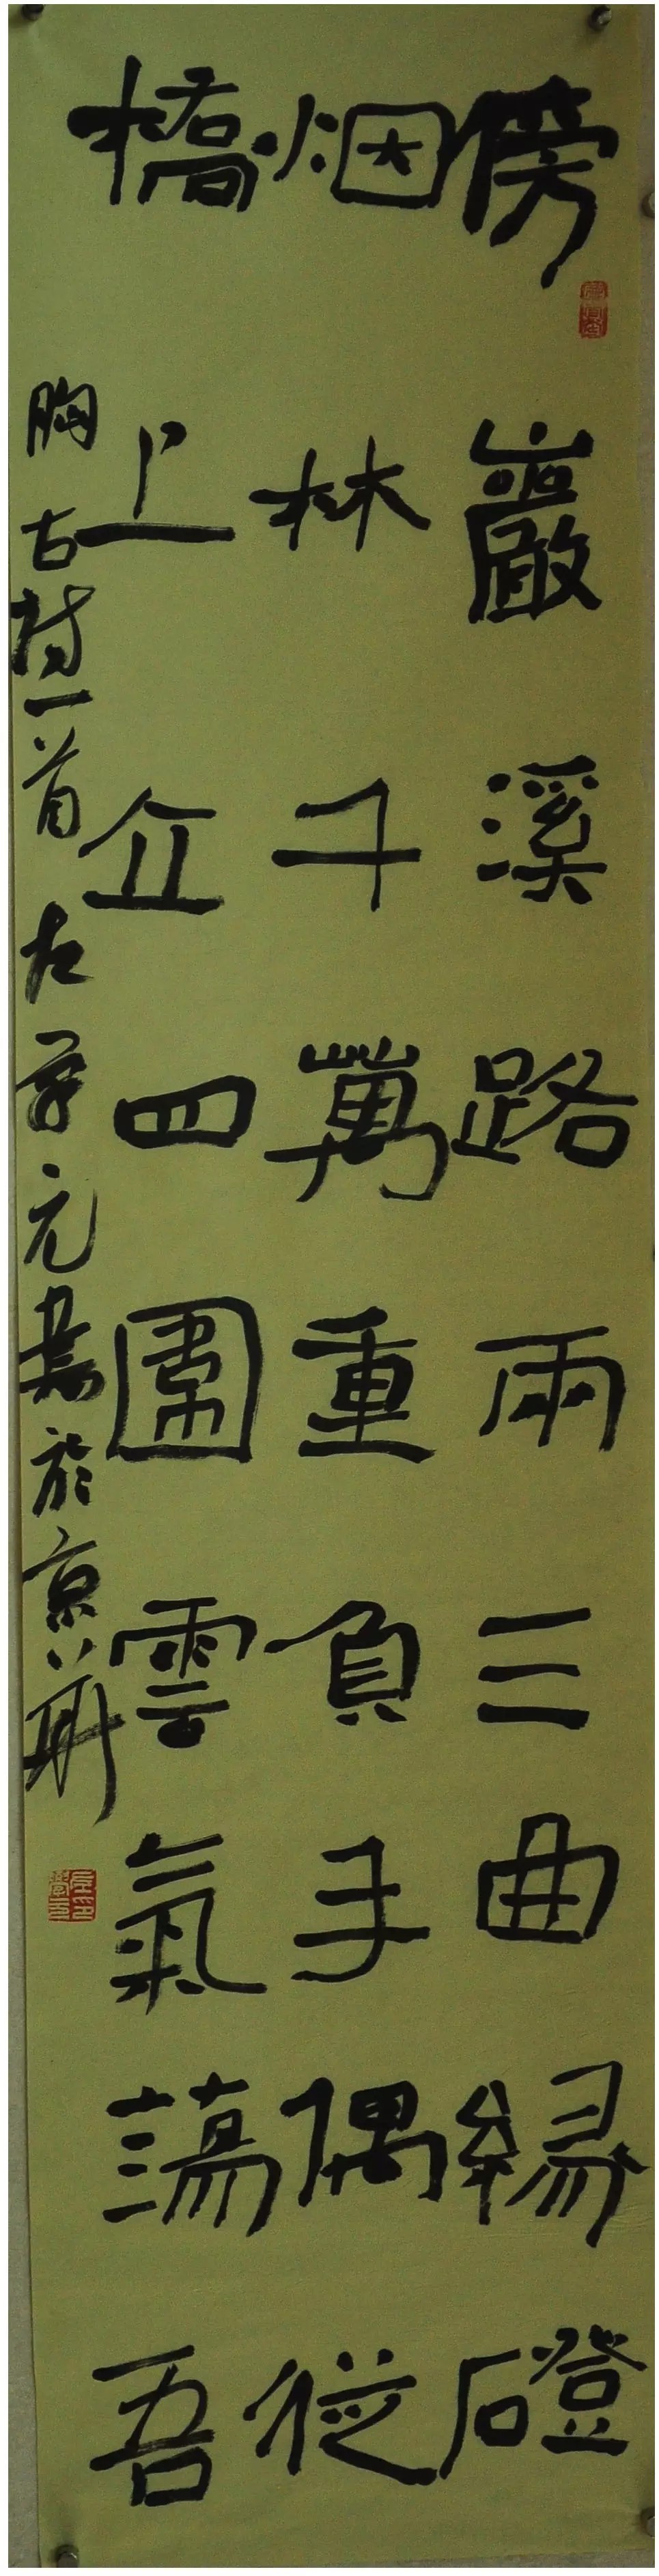 傍巖溪路兩三曲緣磴
烟林千萬重負手偶從
橋上立四圍雲氣蕩吾
胸 古詩一首 左学元書於京華